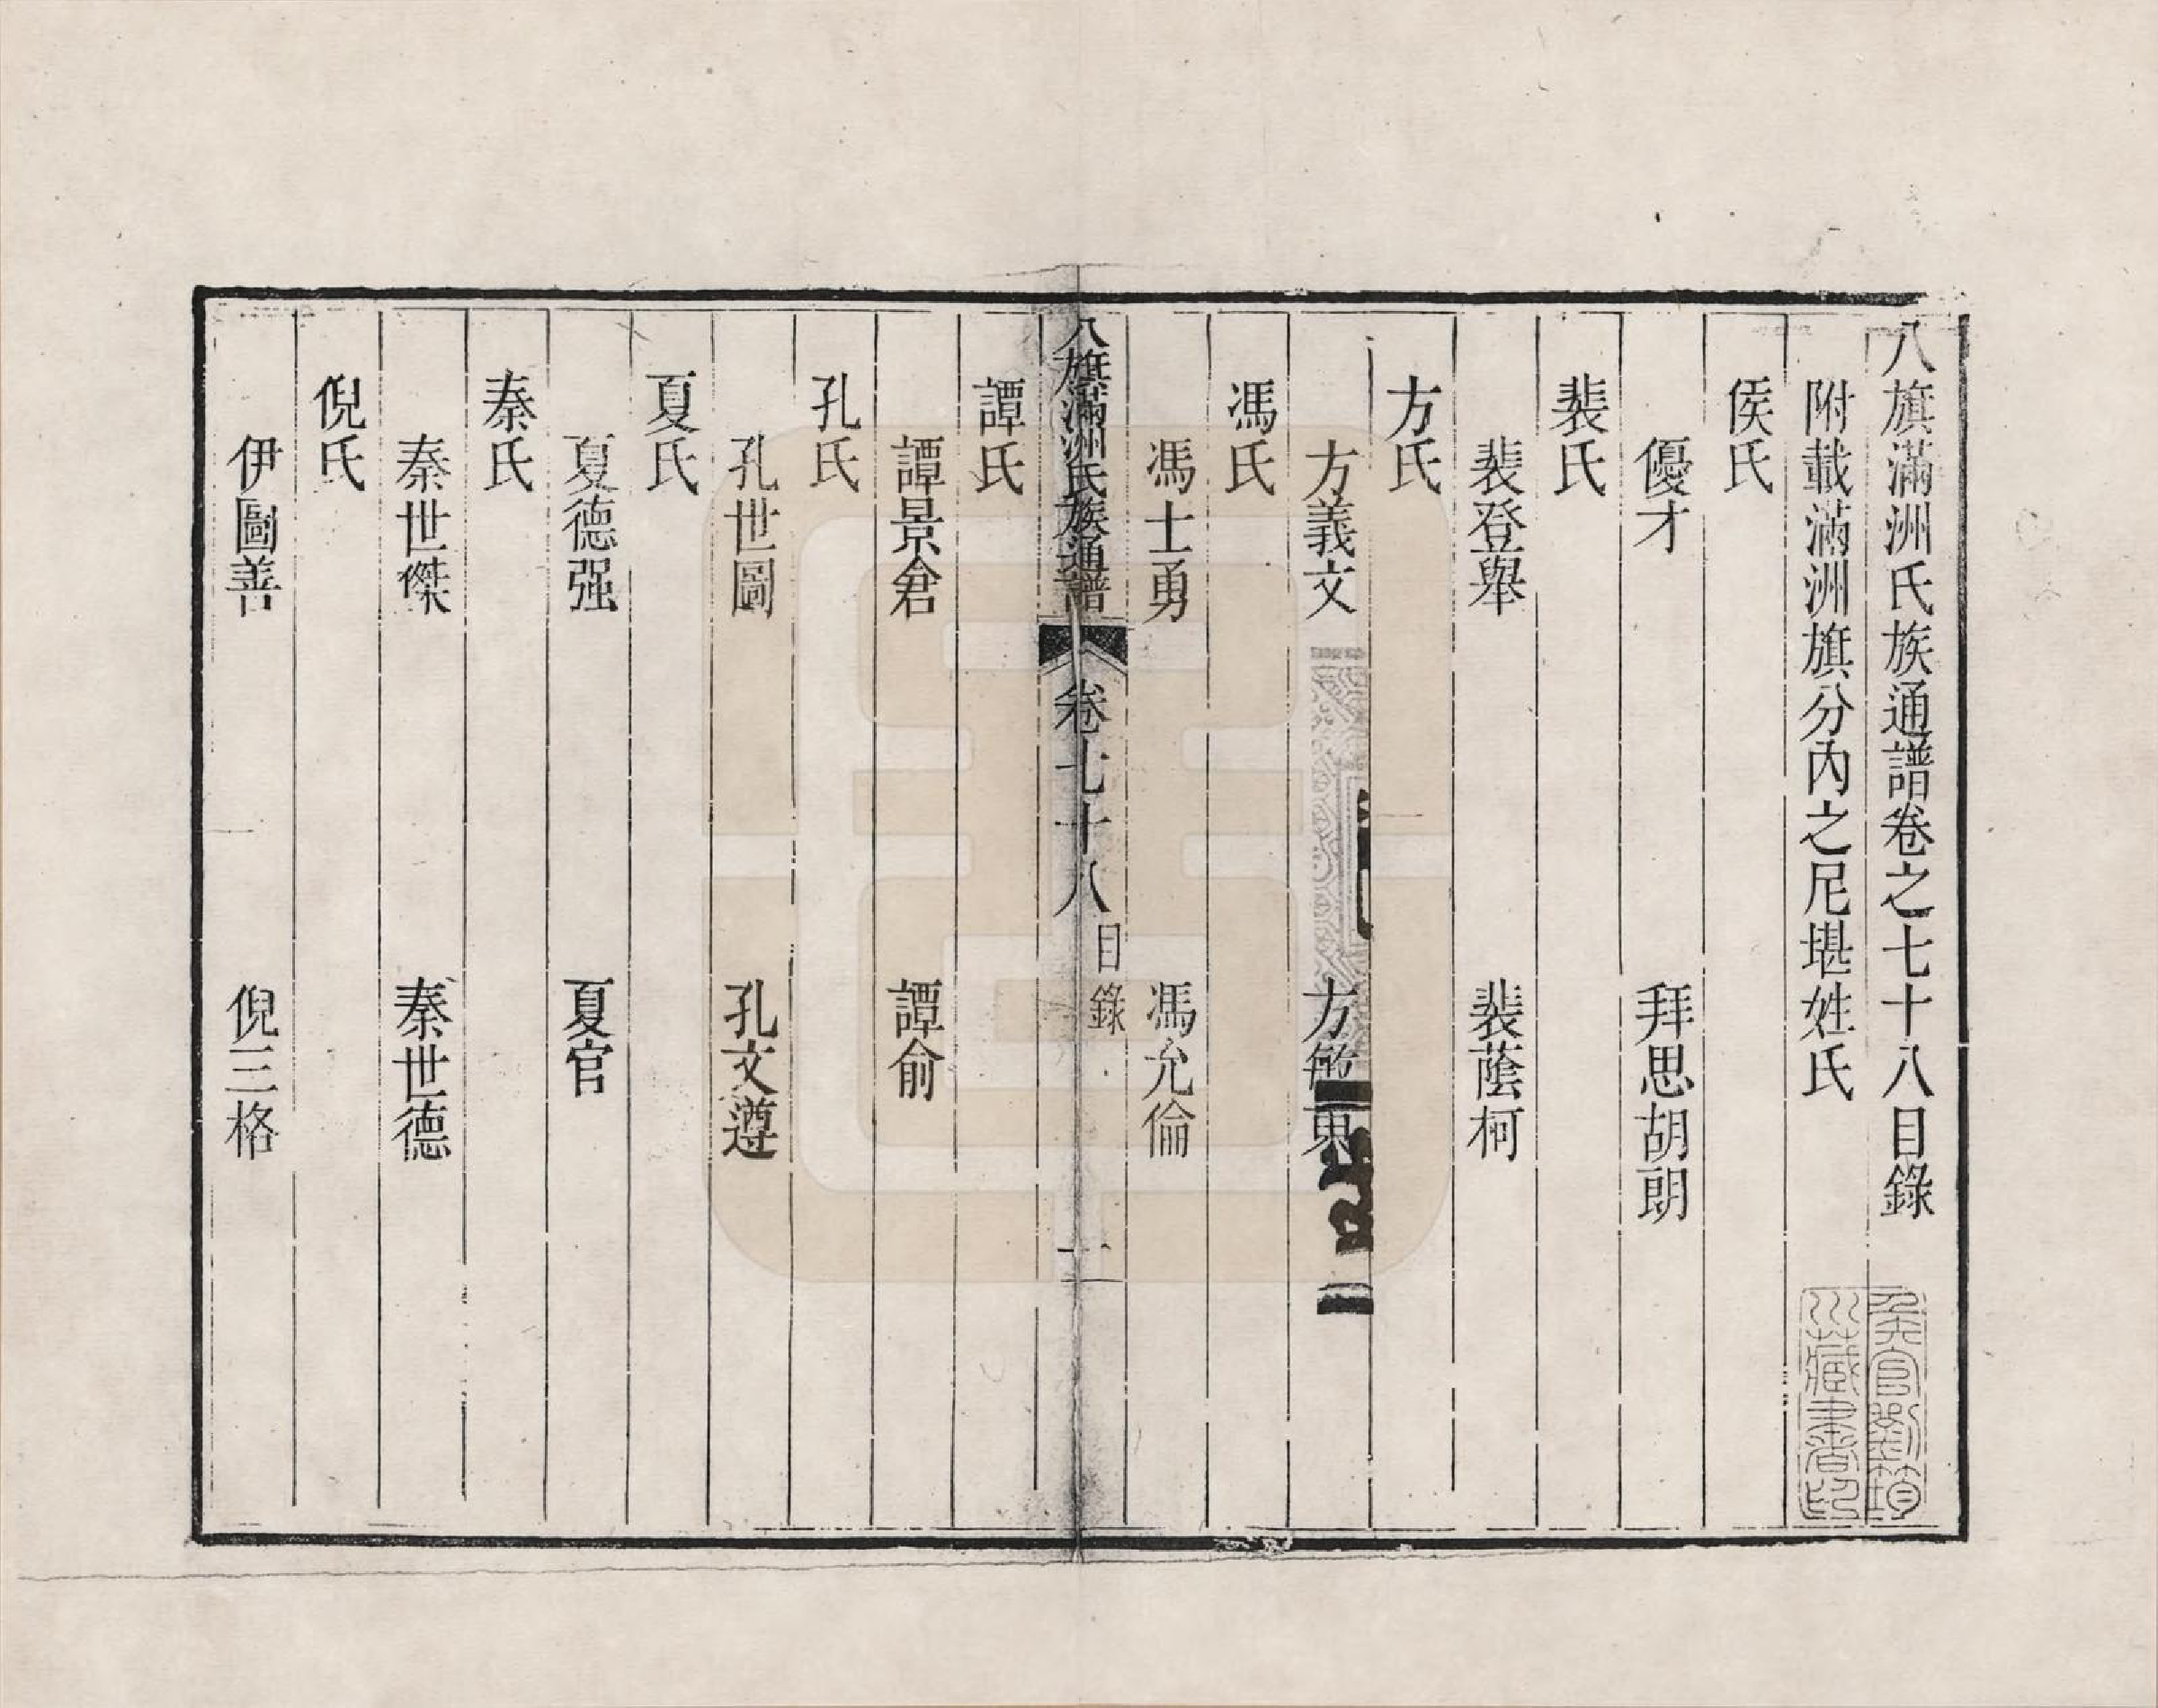 八旗滿洲氏族通譜卷之七十八目錄
附載滿洲旗分內之尼堪姓氏
侯氏
優才 拜思胡朗
裴氏
裴登舉 裴蔭柯
方氏
方義文 方敏東
馮氏
馮士勇 馮允倫
八旗滿洲氏族通譜 卷七十八 目錄 一
譚氏
譚景倉 譚俞
孔氏
孔世圖 孔文遵
夏氏
夏德强 夏官
秦氏
秦世傑 秦世德
倪氏
伊圖善 倪三格